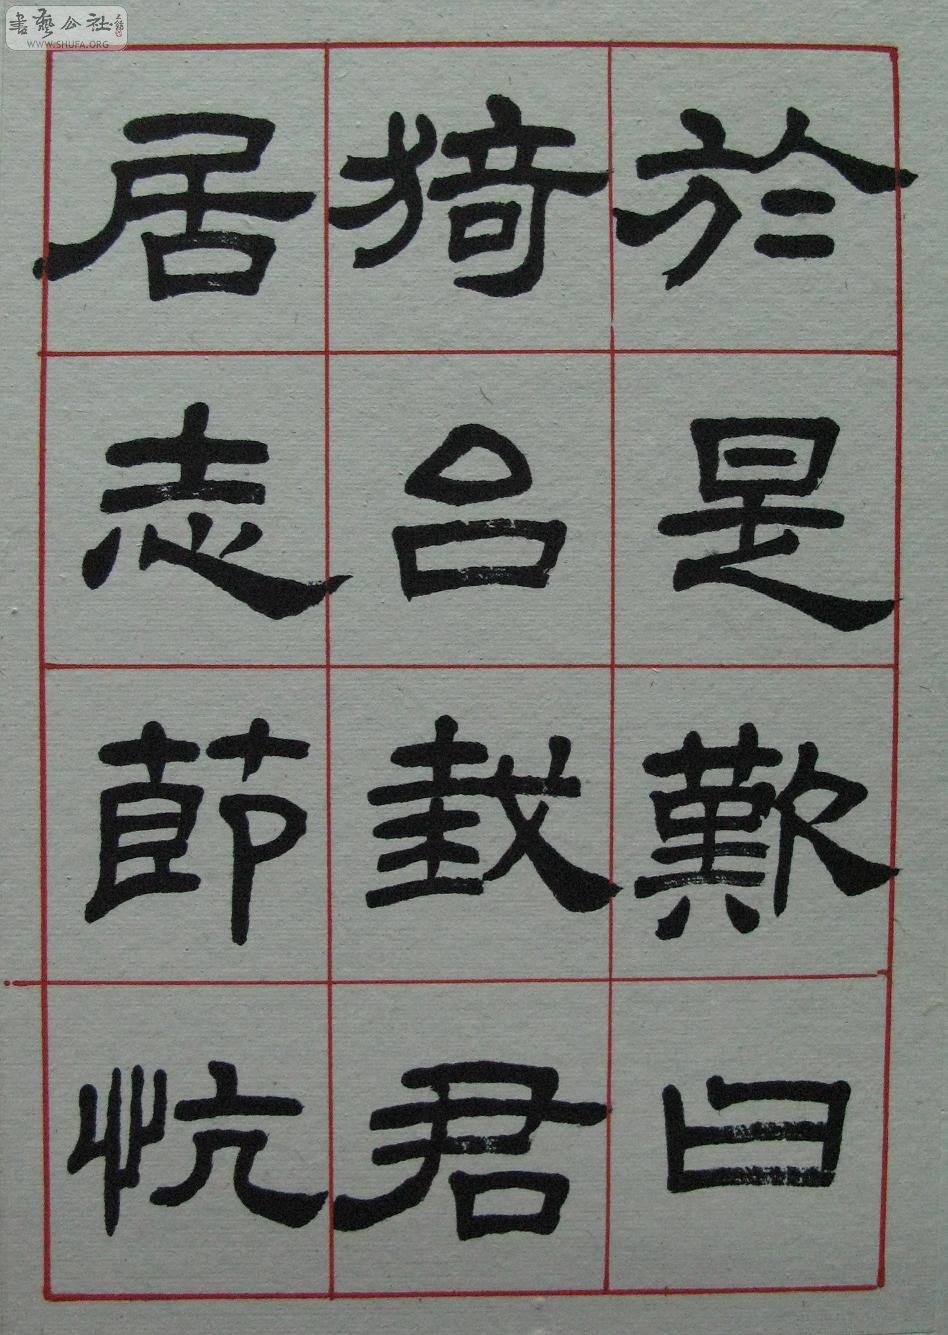 書藝公社
WWW.SHUFA.ORG
於是歎曰
猗台君
居志節忼